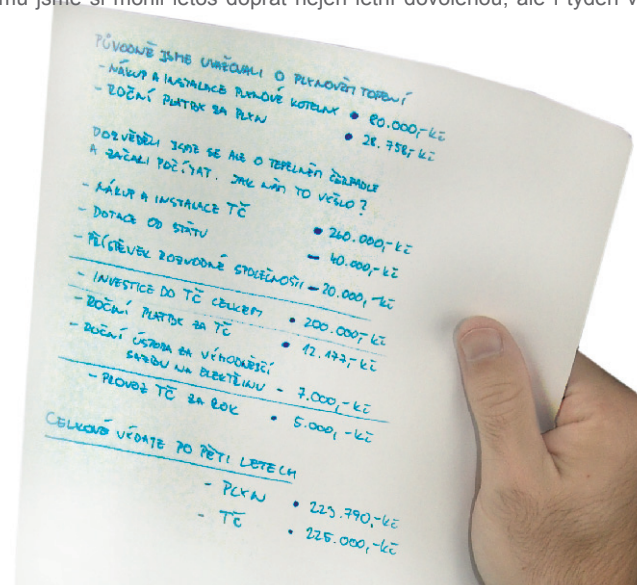 jsme si mohli letos dopřát nejen letní dovolenou, ale i týden v
PŮVODNĚ JSME UVAŽOVALI O PLYNOVÉM TOPENÍ
- NÁKUP A INSTALACE PLYNOVÉ KOTELNY • 80.000,-Kč
- ROČNÍ PLATBY ZA PLYN • 28.758,-Kč
DOZVĚDĚLI JSME SE ALE O TEPELNÉM ČERPADLE
A ZAČALI POČÍTAT. JAK NÁM TO VYŠLO?
- NÁKUP A INSTALACE TČ • 260.000,-Kč
- DOTACE OD STÁTU - 40.000,-Kč
- PŘÍSPĚVEK ROZVODNÉ SPOLEČNOSTI - 20.000,-Kč
- INVESTICE DO TČ CELKEM • 200.000,-Kč
- ROČNÍ PLATBY ZA TČ • 12.177,-Kč
- ROČNÍ ÚSPORA ZA VÝHODNĚJŠÍ
SAZBU NA ELEKTŘINU - 7.000,-Kč
- PROVOZ TČ ZA ROK • 5.000,-Kč
CELKOVÉ VÝDAJE PO PĚTI LETECH
- PLYN • 223.790,-Kč
- TČ • 225.000,-Kč